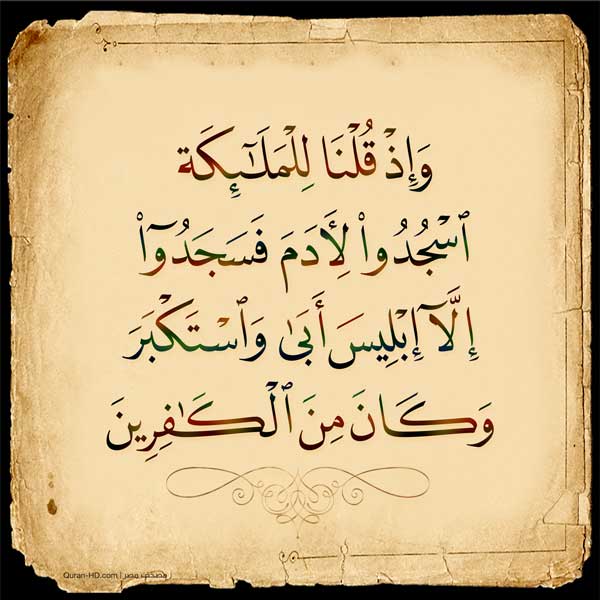 وَإِذْ قُلْنَا لِلْمَلَٰٓئِكَةِ
ٱسْجُدُوا۟ لِأَدَمَ فَسَجَدُوٓا۟
إِلَّآ إِبْلِيسَ أَبَىٰ وَٱسْتَكْبَرَ
وَكَانَ مِنَ ٱلْكَٰفِرِينَ
مصحف مصر | Quran-HD.com